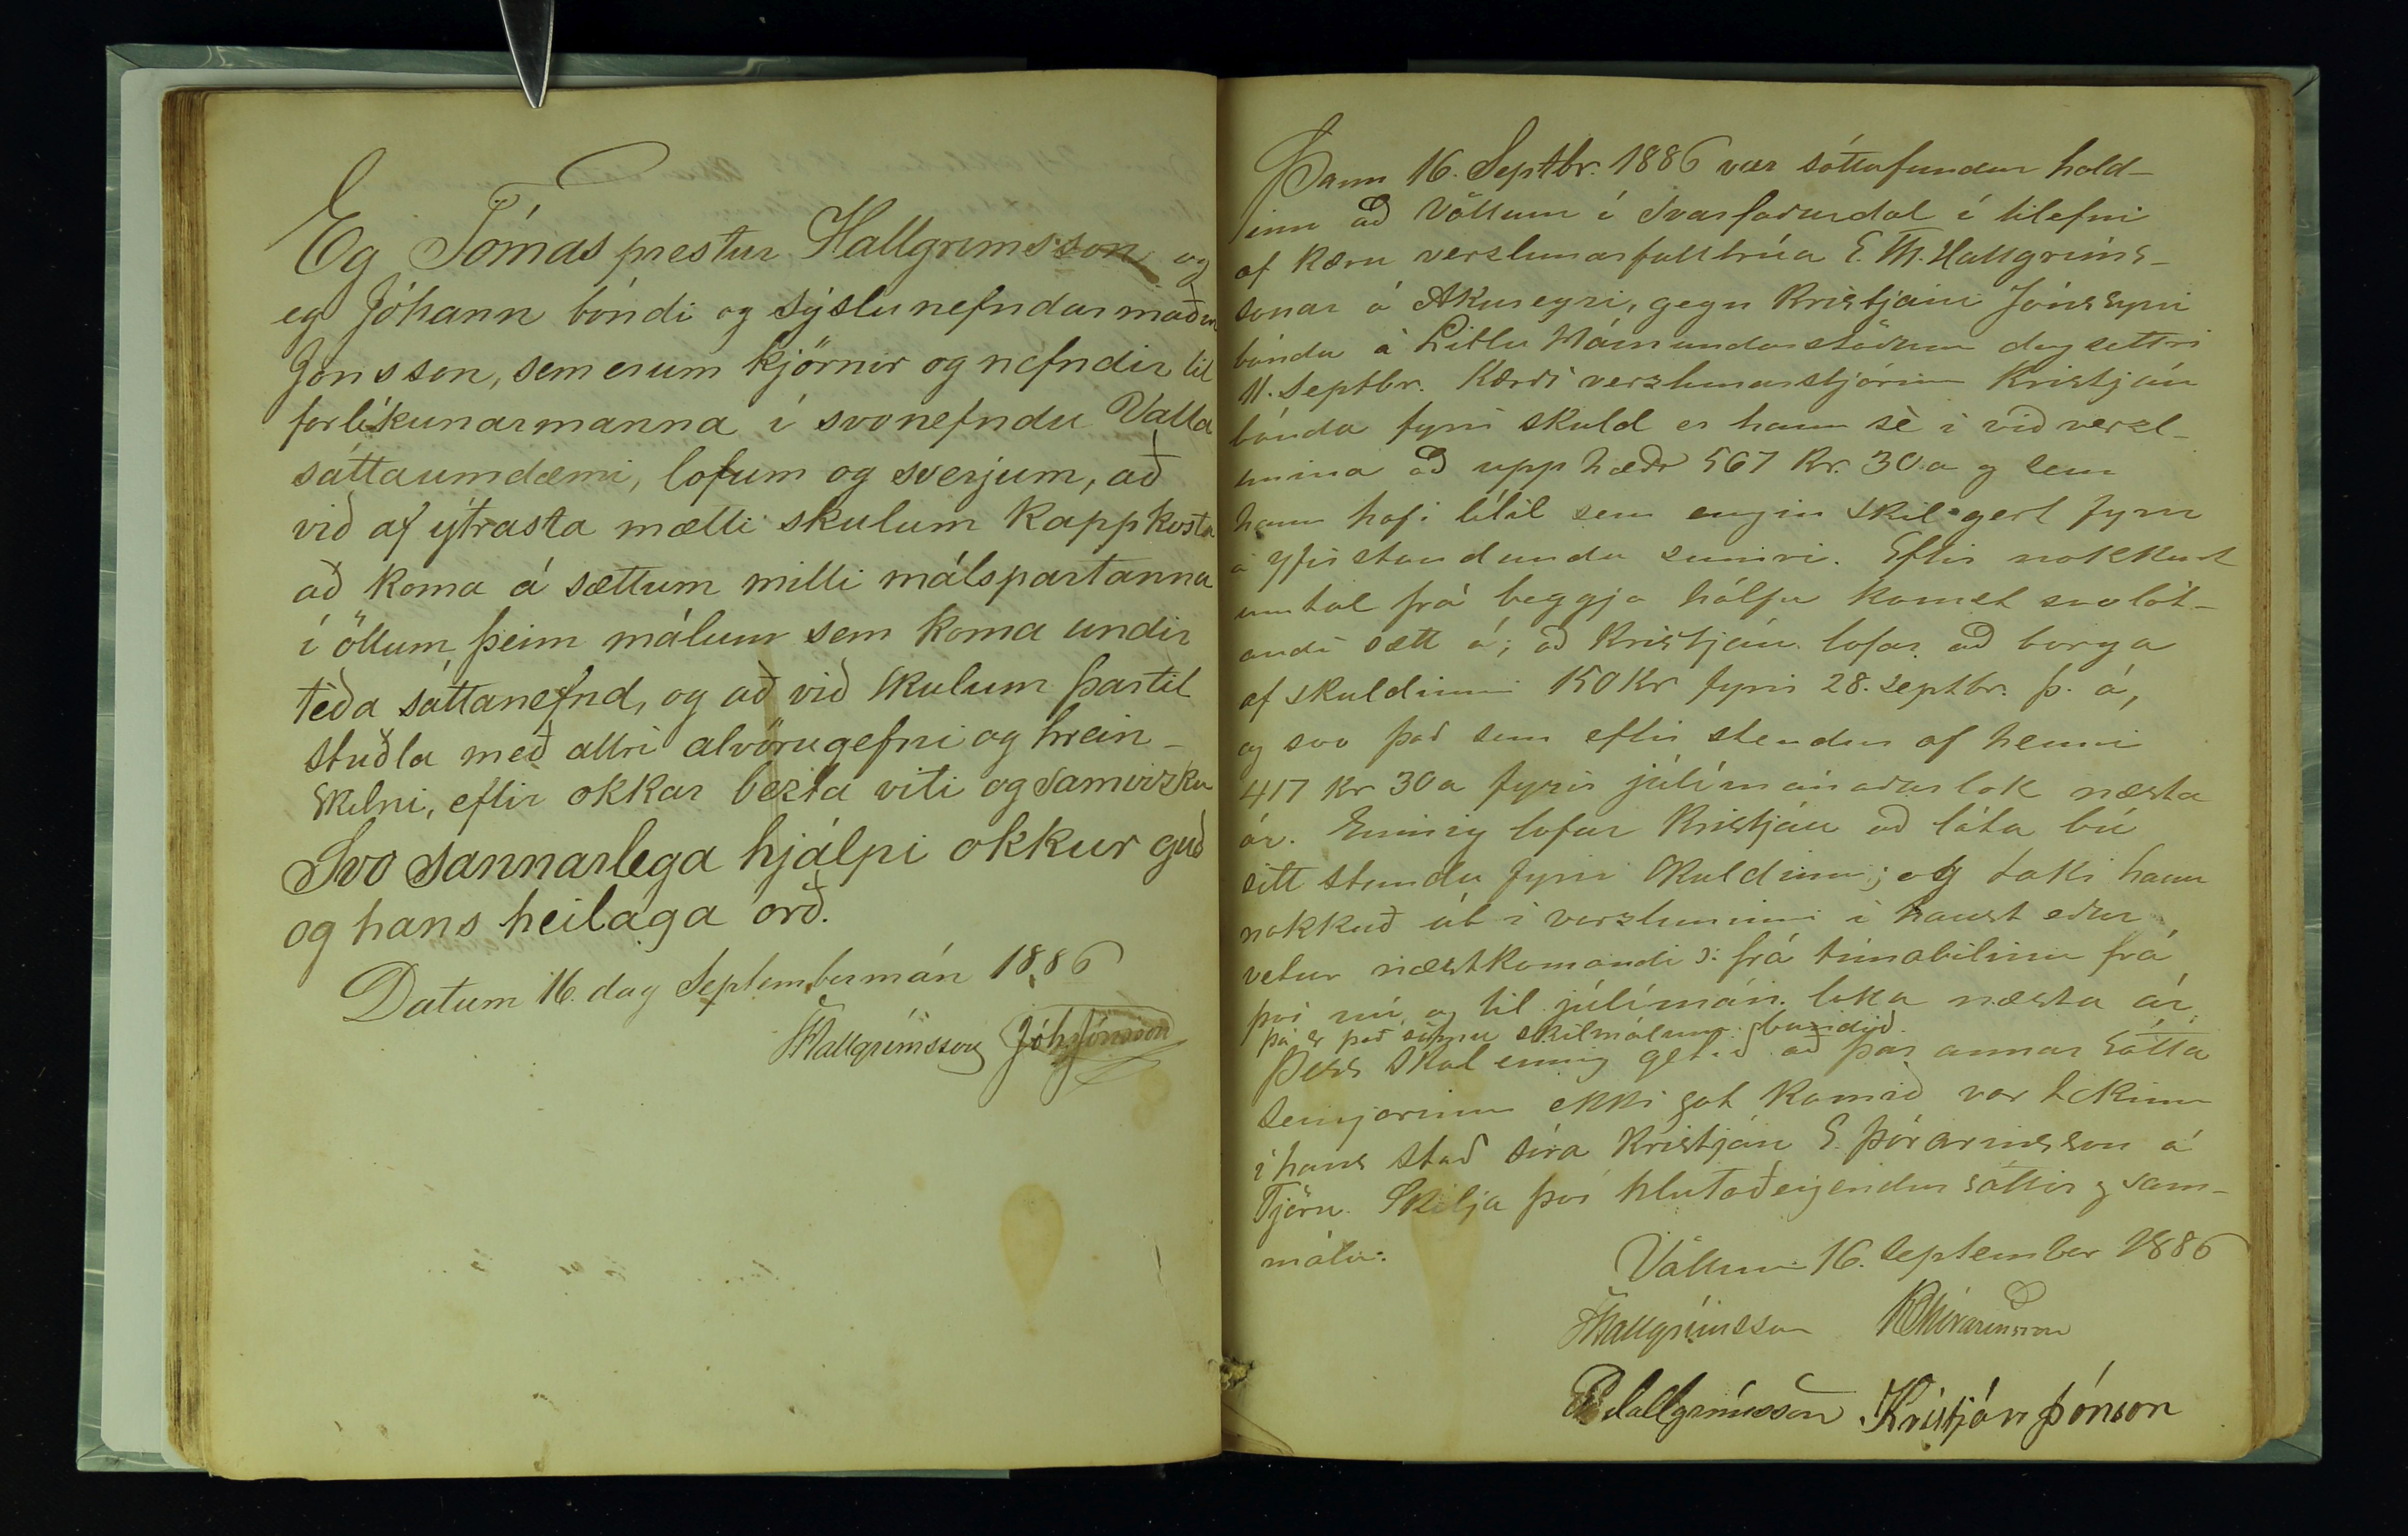 Eg Tómas prestur Hallgrimsson og
eg Jóhann bóndi og sýslunefndarmaður
Jónsson, sem erum kjörnir og nefndir til
forlíkunarmanna í svonefndu Valla
sáttaumdæmi, lofum og sverjum, að
við af ýtrasta mætti skulum kappkosta
að koma á sættum milli málspartanna
í öllum þeim málum sem koma undir
téða sáttanefnd, og að við skulum þartil
stuðla með allri alvörugefni og hrein-
skilni, eftir okkar bezta viti og samvizku
Svo sannarlega hjálpi okkur guð
og hans heilaga orð.
Datum 16. dag Septembermán 1886
THallgrímsson Jóh Jónsson
Þann 16. Septbr. 1886 var sáttafundur hald-
inn að Völlum í Svarfaðardal í tilefni
af kæru verzlunarfulltrúa E. Th. Hallgríms-
sonar á Akureyri, gegn Kristjáni Jónssyni
bónda á Litlu Hámundarstöðum dagsettri
11. Septbr. Kærði verzlunarstjórinn Kristján
bónda fyrir skuld er hann sé í við verzl-
unina að upphæð 567 Kr. 30 a og sem
hann hafi lítil sem engin skil gert fyrir
á yfirstandandi sumri. Eftir nokkurt
umtal frá beggja hálfu komst svolát-
andi sætt á; að Kristján lofar að borga
af skuldinni 150 Kr fyrir 28. septbr. þ. á,
og svo það sem eftir stendur af henni
417 Kr 30 a fyrir júlímánaðarlok næsta
ár. Einnig lofar Kristján að láta bú
sitt standa fyrir skuldinni; og taki hann
nokkuð út í verzluninni í haust eður
vetur næstkomandi ɔ: frá tímabilinu frá
því nú og til júlímán. loka næsta ár,
þá er það sömu skilmálum bundið.
Þess skal einnig getið að þar annar sátta
semjarinn ekki gat komið var tekinn
í hans stað síra Kristján E. Þórarinsson á
Tjörn. Skilja því hlutaðeigendur sáttir og sam-
mála.
Völlum 16. September 1886
THallgrímsson KEThórarinsson
EThHallgrímsson Kristján Þónson